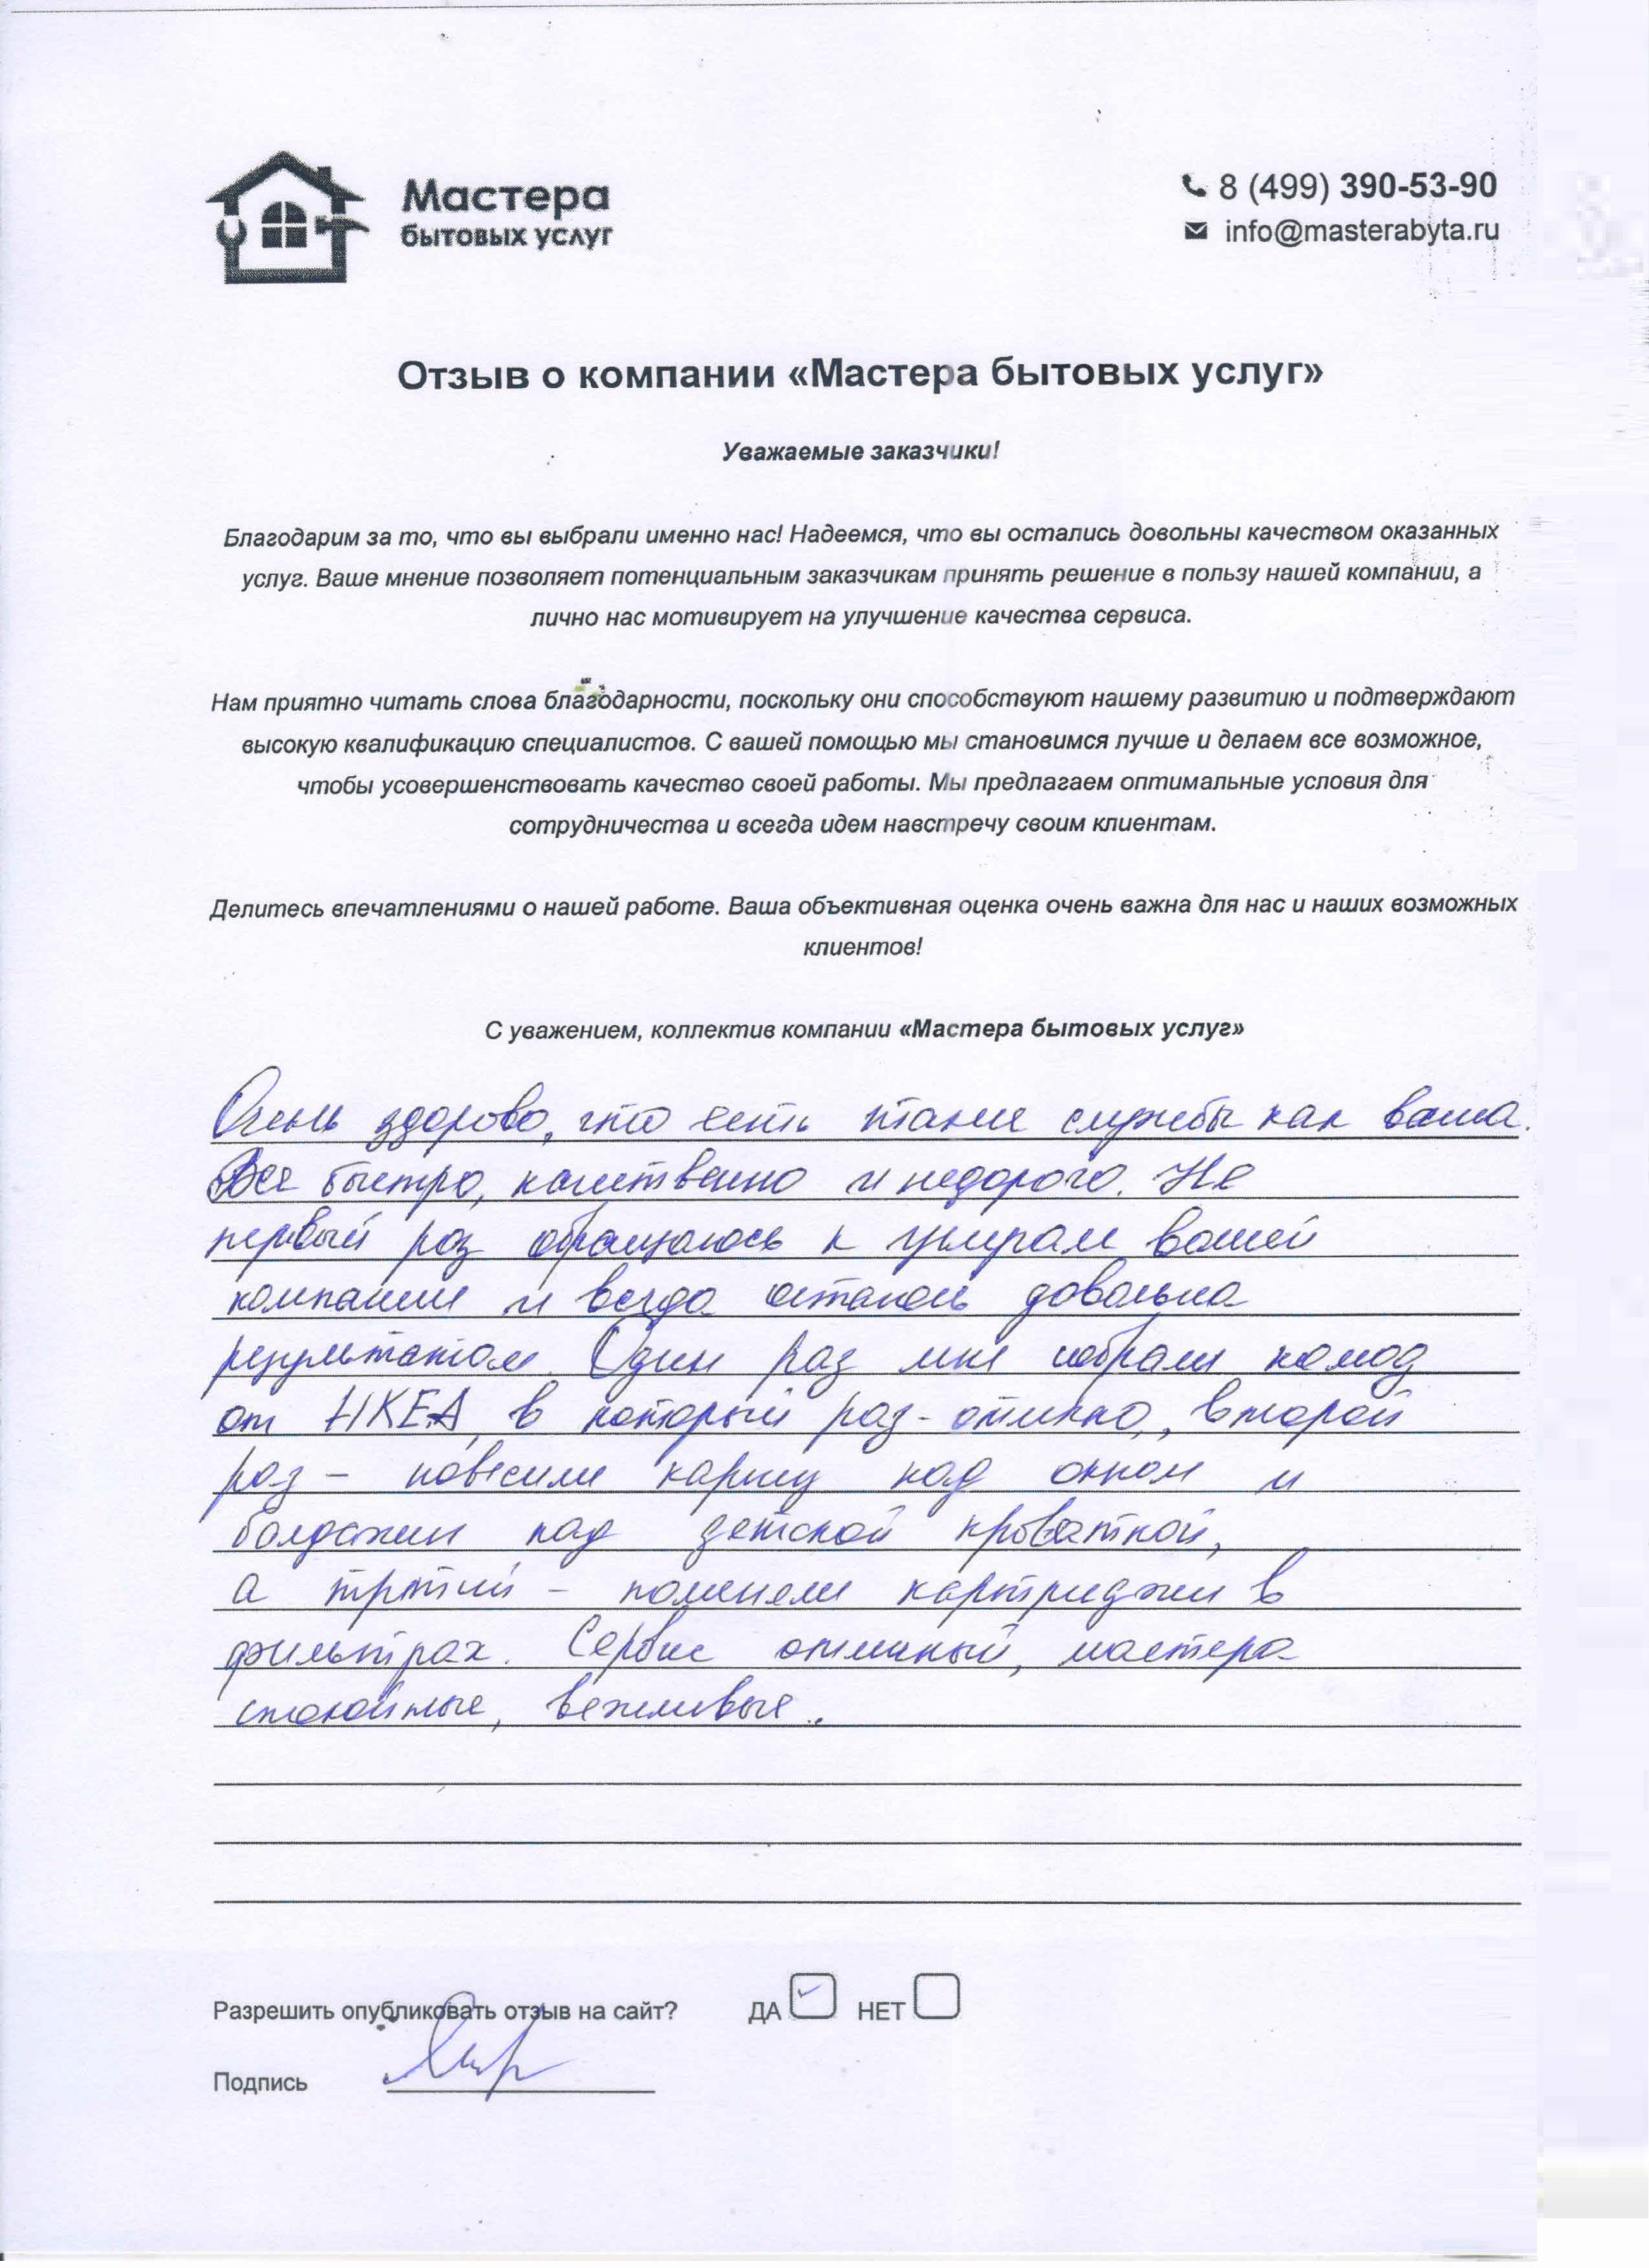 Мастера
бытовых услуг
8 (499) 390-53-90
info@masterabyta.ru
Отзыв о компании «Мастера бытовых услуг»
Уважаемые заказчики!
Благодарим за то, что вы выбрали именно нас! Надеемся, что вы остались довольны качеством оказанных
услуг. Ваше мнение позволяет потенциальным заказчикам принять решение в пользу нашей компании, а
лично нас мотивирует на улучшение качества сервиса.
Нам приятно читать слова благодарности, поскольку они способствуют нашему развитию и подтверждают
высокую квалификацию специалистов. С вашей помощью мы становимся лучше и делаем все возможное,
чтобы усовершенствовать качество своей работы. Мы предлагаем оптимальные условия для
сотрудничества и всегда идем навстречу своим клиентам.
Делитесь впечатлениями о нашей работе. Ваша объективная оценка очень важна для нас и наших возможных
клиентов!
С уважением, коллектив компании «Мастера бытовых услуг»
Очень здорово, что есть такие службы как ваша.
Все быстро, качественно и недорого. Не
первый раз обращаюсь к услугам вашей
компании и всегда остаюсь довольна
результатом. Один раз мне собрали комод
от ИКЕА, в который раз - отлично, второй
раз - повесили карниз над окном и
балдахин над детской кроваткой,
а третий - поменяли картриджи в
фильтрах. Сервис отличный, мастера
спокойные, вежливые.
Разрешить опубликовать отзыв на сайт? ДА НЕТ
Подпись